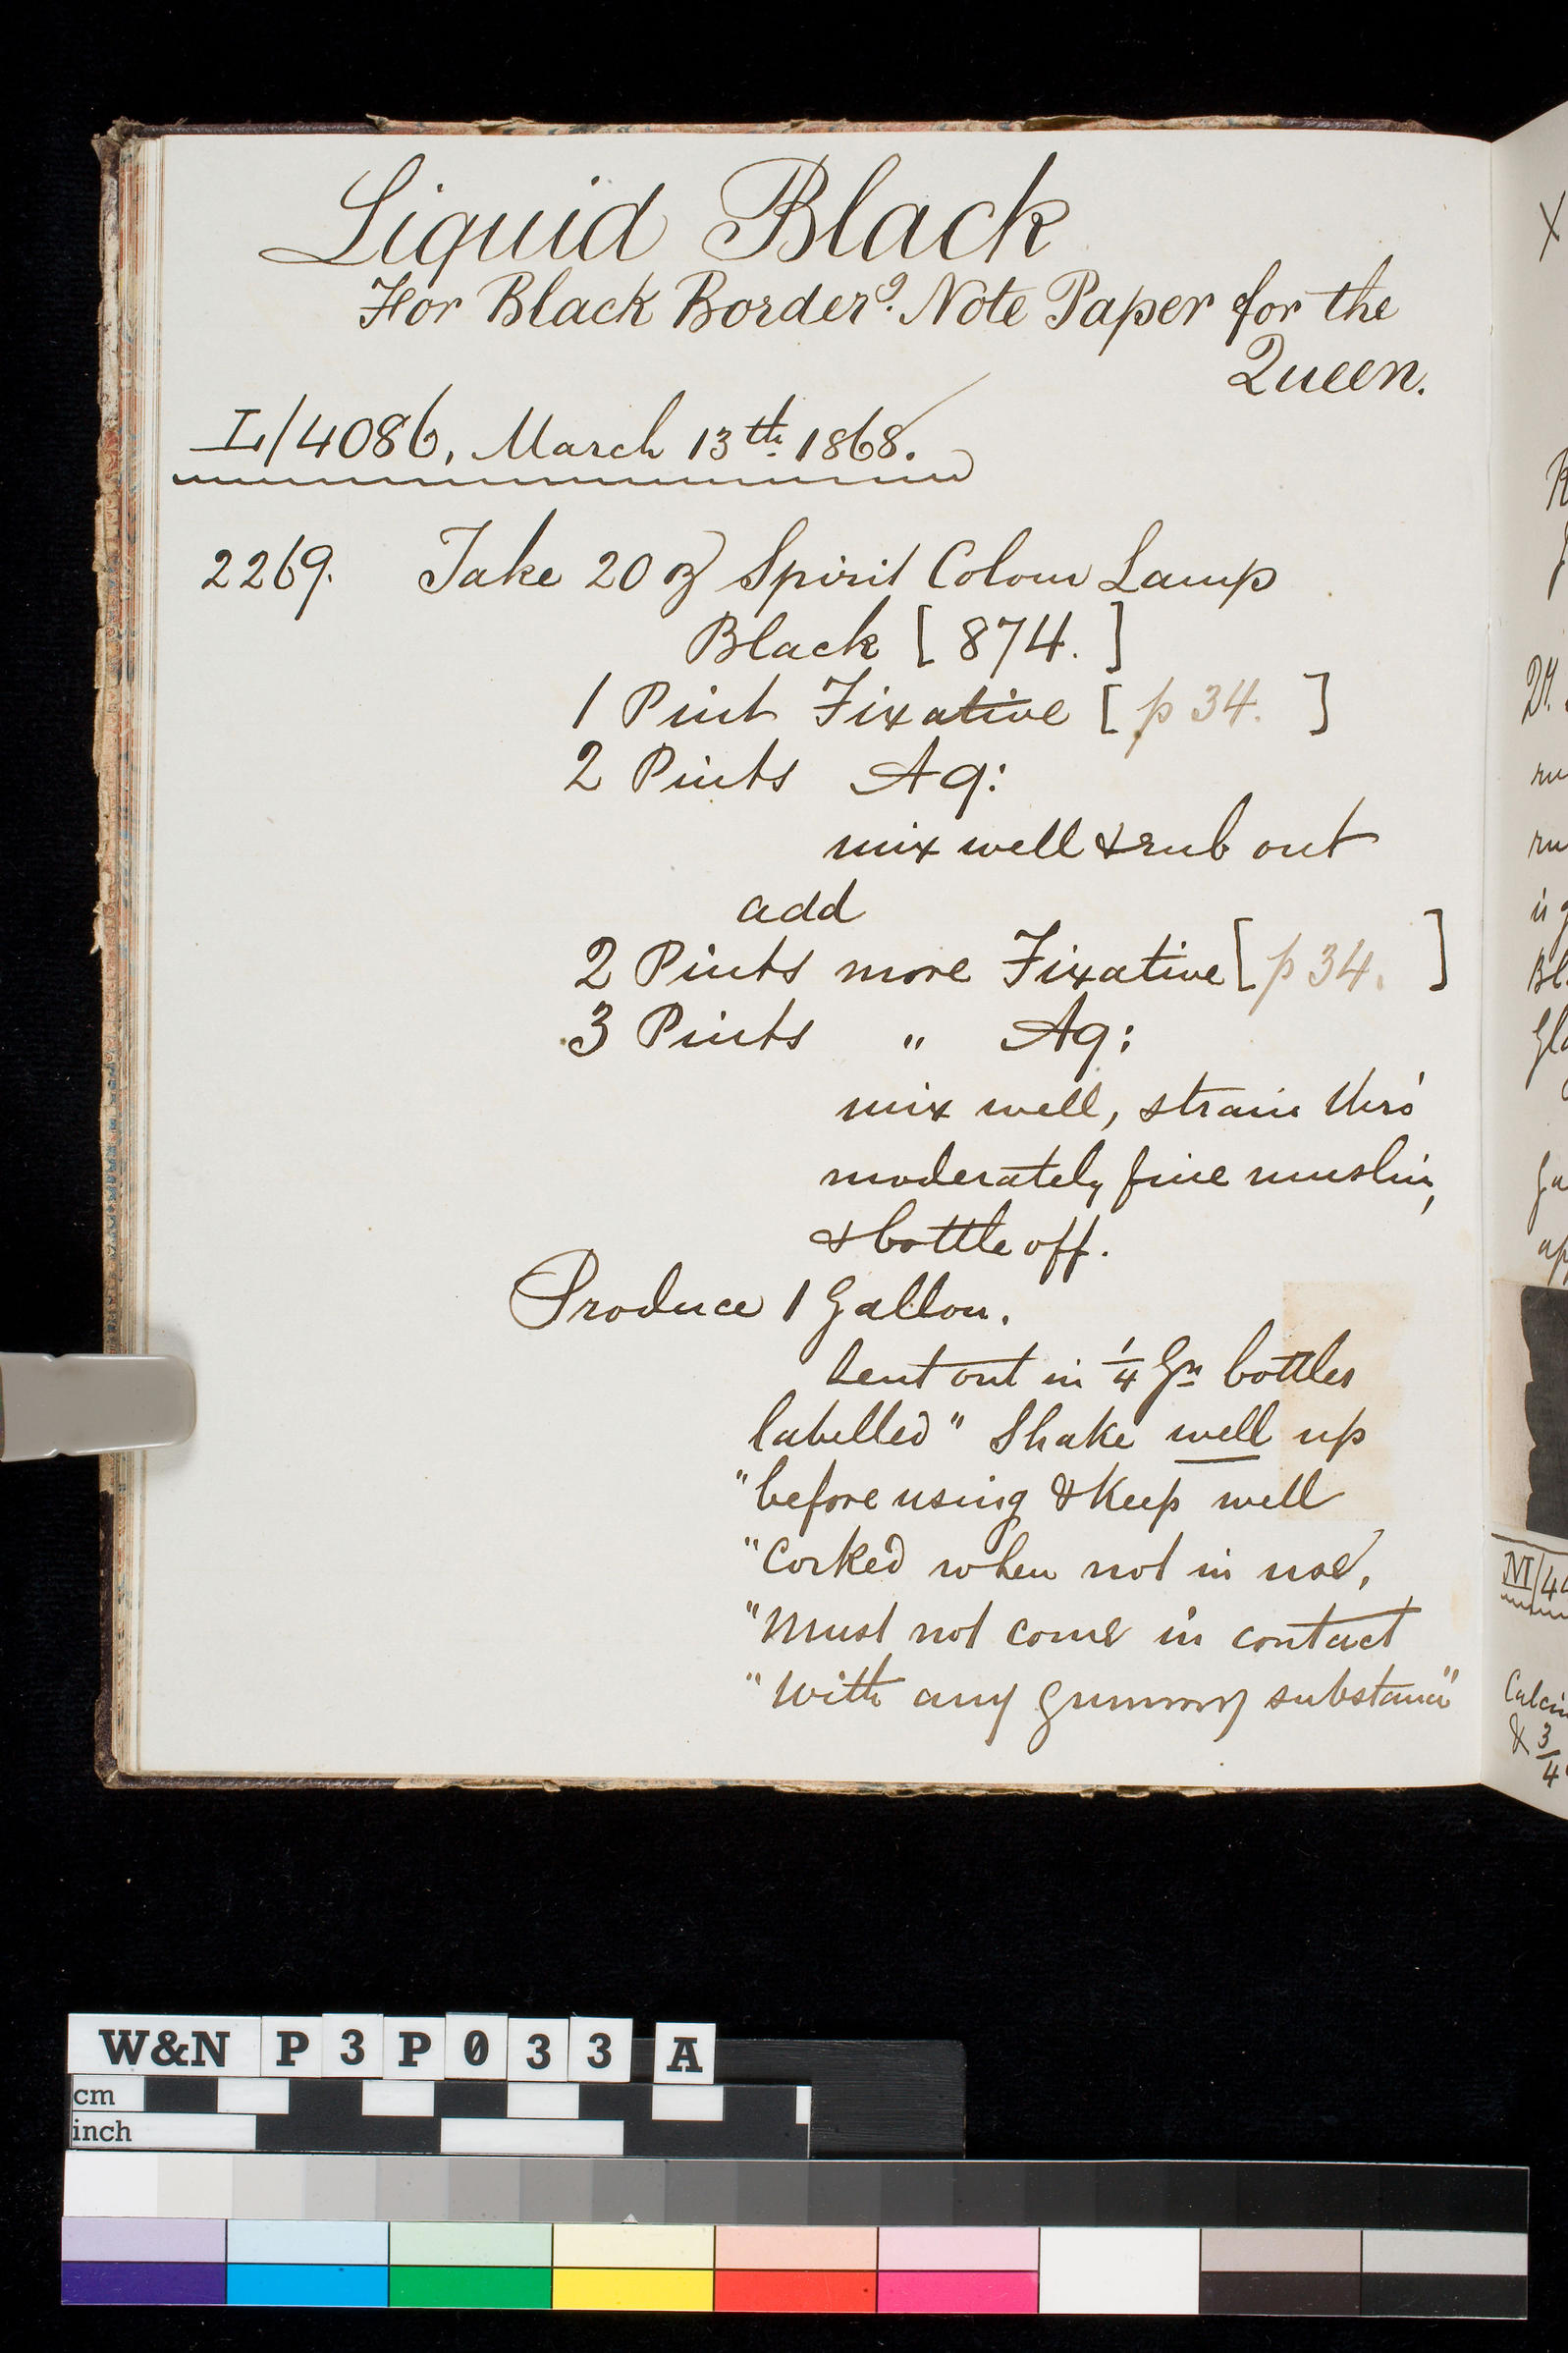 Liquid Black
For Black Border^d. Note Paper for the
Queen.
L/4086, March 13th. 1868.
2269. Take 20 oz Spirit Colour Lamp
Black [ 874. ]
1 Pint Fixative [ p 34. ]
2 Pints Aq:
mix well & rub out
add
2 Pints more Fixative [ p 34. ]
3 Pints " Aq:
mix well, strain thro'
moderately fine muslin,
& bottle off.
Produce 1 Gallon.
Sent out in 1/4 Gn bottles
labelled " Shake well up
" before using & Keep well
" Corked when not in use,
" Must not come in contact
" With any gummy substance"
X
M/44
Calcin
& 3/4
W&N P3P033 A
cm
inch